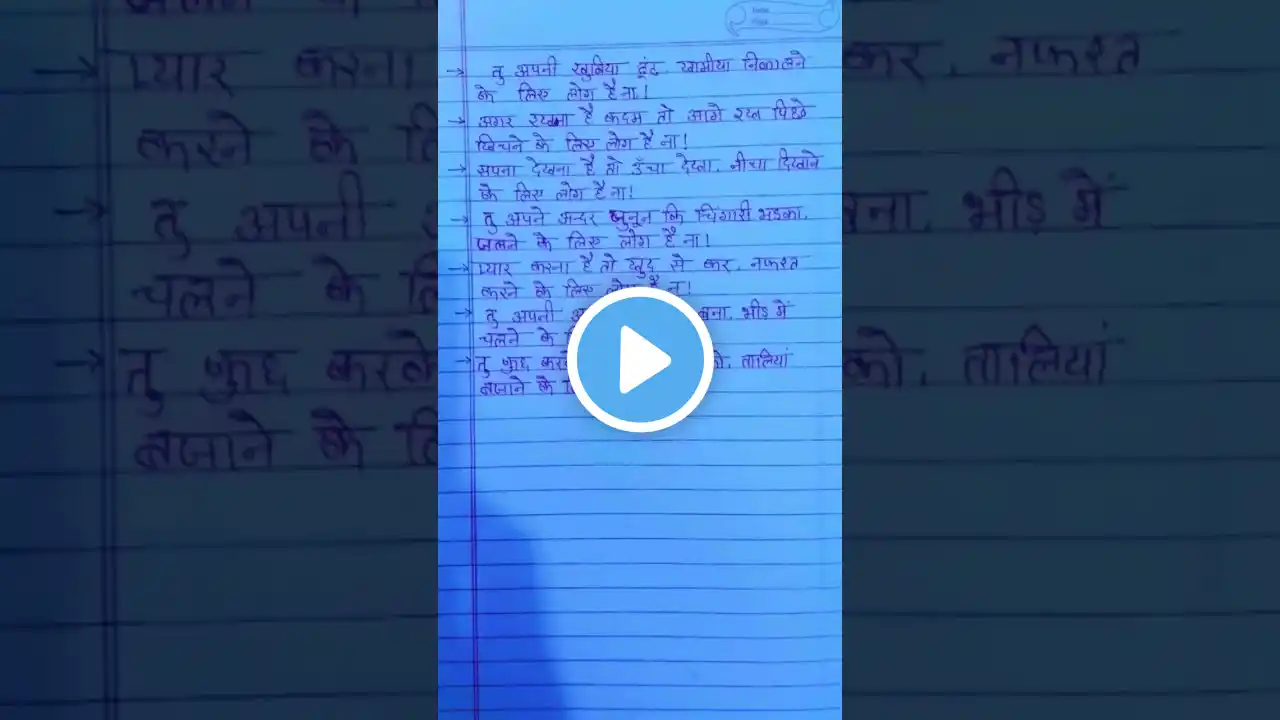 → तु अपनी खुबिया ढुंढ, खामीया निकालने
के लिए लोग है ना!
→ अगर रखना है कदम तो आगे रख पिछे
खिचने के लिए लोग है ना!
→ सपना देखना है तो ऊँचा देख, नीचा दिखाने
के लिए लोग है ना!
→ तु अपने अन्दर जुनून कि चिंगारी भडका,
जलने के लिए लोग है ना!
→ प्यार करना है तो खुद से कर, नफरत
करने के लिए लोग है न!
→ तु अपनी बना, भीड में
चलने के
→ तु कुछ करके को, तालियां
बजाने के